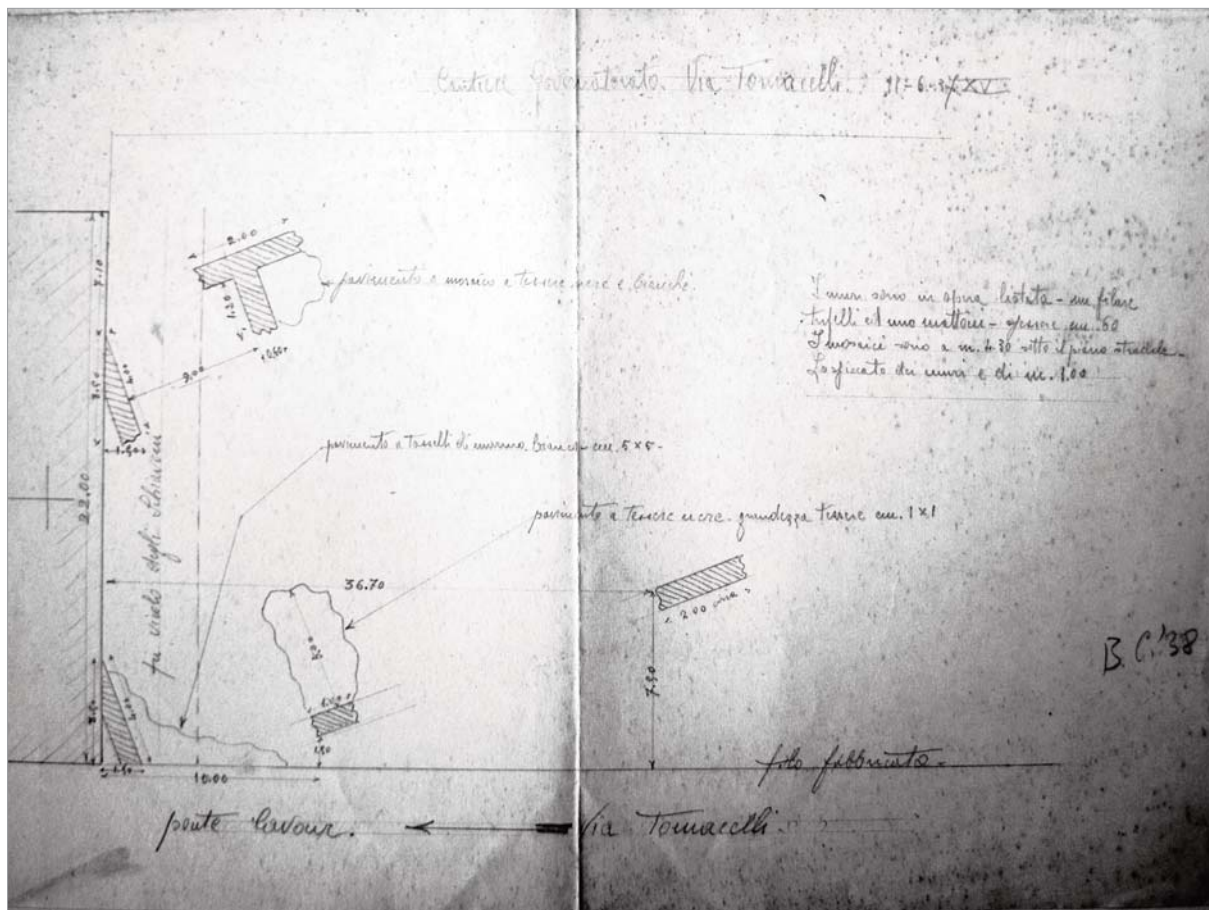 Cantiere Governatorato. Via Tomacelli.
2.00
pavimento a mosaico a tessere nere e bianche.
7.10
I muri sono in opera listata - un filare
tufelli ed uno mattoni - spessore cm. 60
I mosaici sono a m. 4.30 sotto il piano stradale -
Lo spiccato dei muri è di m. 1.00
0.60
9.00
4.00
3.50
1.50
pavimento a tasselli di marmo bianco - cm. 5 x 5 -
22.00
vicolo degli Schiavoni
pavimento a tessere nere - grandezza tessere cm. 1 x 1
36.70
2.00 circa
B. C. '38
7.50
4.00
filo fabbricato -
10.00
ponte Cavour.
Via Tomacelli.